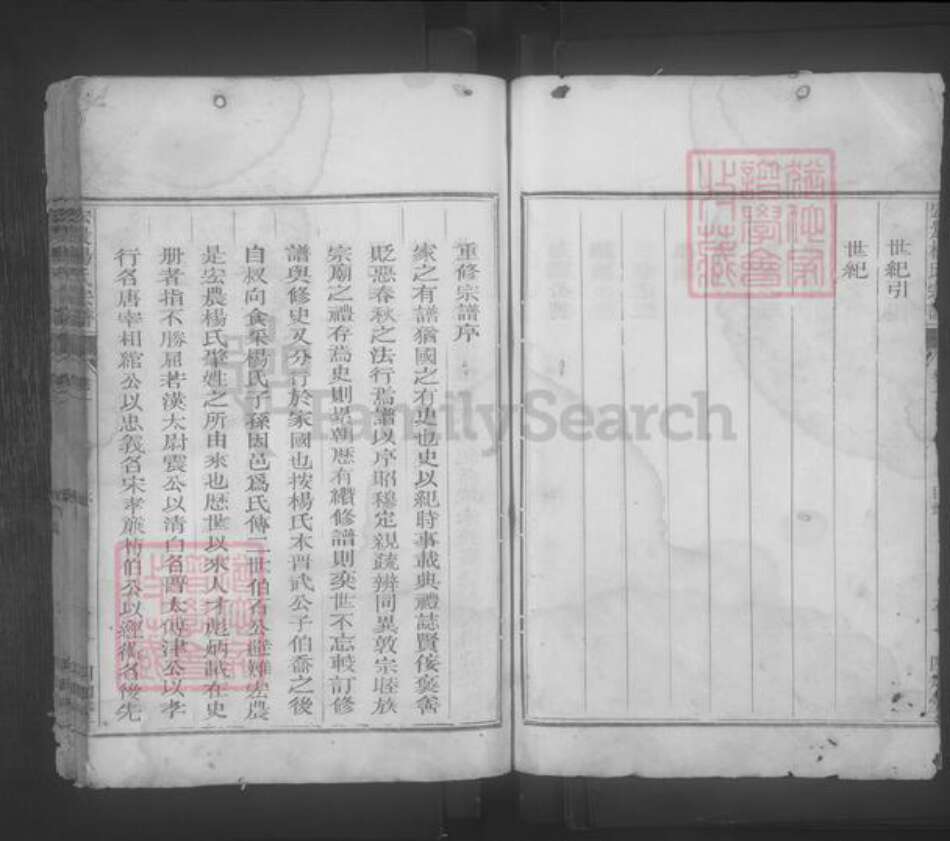 世紀引
世紀
重修宗譜序
家之有譜猶國之有史也史以紀時事載典禮誌賢俊褒善
貶惡春秋之法行焉譜以序昭穆定親疏辨同異敦宗睦族
宗廟之禮存焉史則累朝歷有纘修譜則奕世不忘較訂修
譜與修史又分行於家國也按楊氏本晋武公子伯喬之後
自叔向食采楊氏子孫因邑爲氏傳二世伯石公避難宏農
是宏農楊氏肇姓之所由來也歷世以來人才彪炳載在史
册者指不勝屈若漢太尉震公以清白名晋太傅津公以孝
行名唐宰相綰公以忠義名宋孝廉愽伯公以經術名後先
FamilySearch